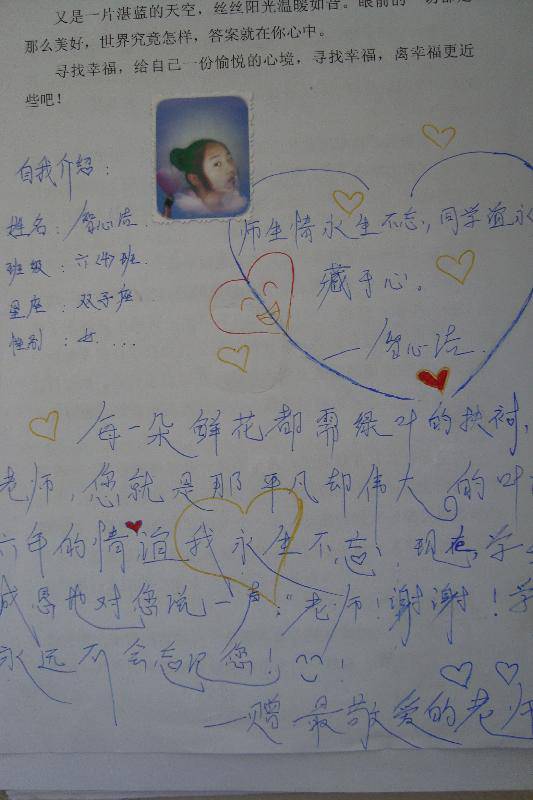 又是一片湛蓝的天空，丝丝阳光温暖如昔。眼前的一切都是
那么美好，世界究竟怎样，答案就在你心中。
寻找幸福，给自己一份愉悦的心境，寻找幸福，离幸福更近
些吧！
自我介绍：
姓名：心洁
班级：六班
星座：双子座
性别：女....
师生情永生不忘，同学谊永
藏于心。
—心洁
每一朵鲜花都需绿叶的扶衬，
老师，您就是那平凡却伟大的叶
六年的情谊我永生不忘，现在，学
感恩地对您说一声：“老师！谢谢！学
永远不会忘记您！
—赠 最敬爱的老师